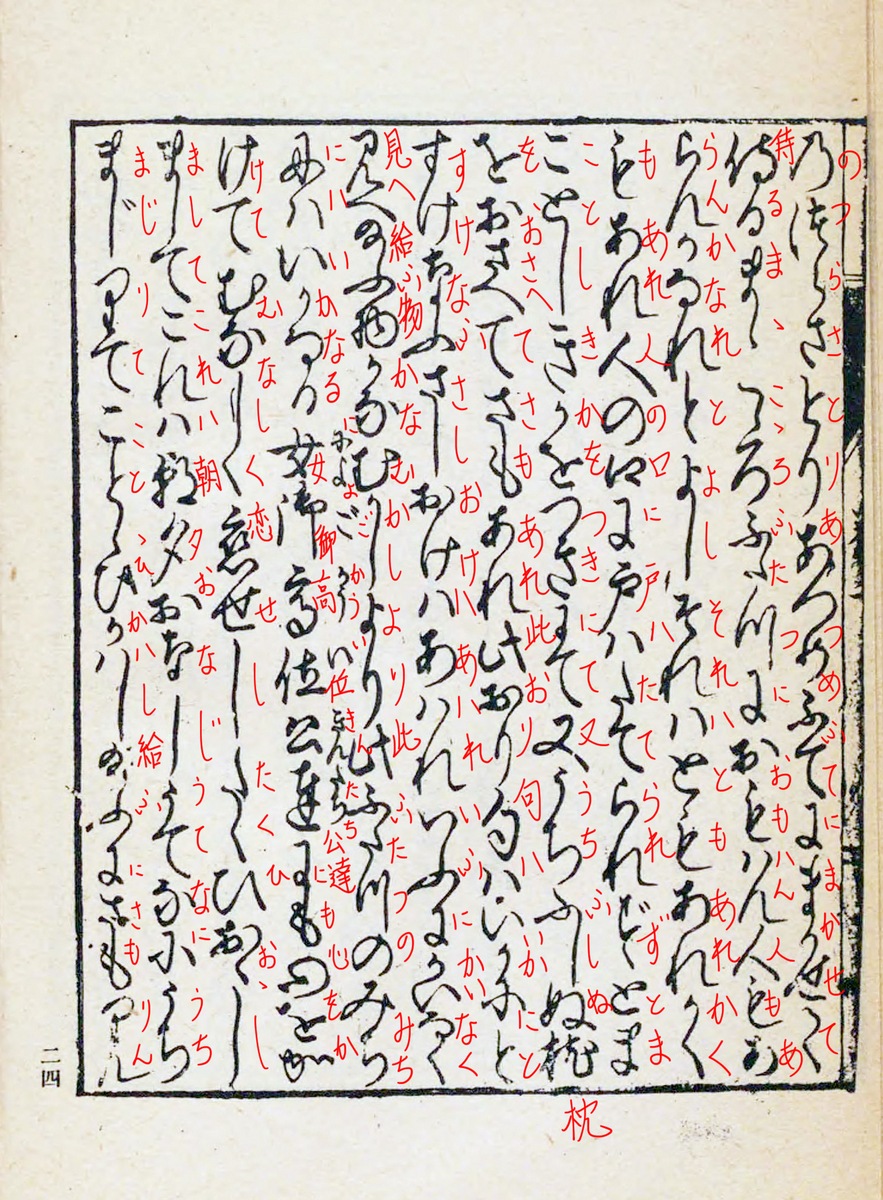 のつらさとりあつめふでにまかせて
待るまゝこゝろふたつにおもハん人もあ
らんかなれとよしそれハともあれかく
もあれ人の口に戸ハたてられずとま
ことしきかをつきにて又うちふしぬ枕
をおさへてさもあれ此おり句ハいかにと
すけなふさしおけハあハれいふにかいなく
見へ給ふ物かなむかしより此ふたつのみち
にハいかなる女御高位公達にも心をか
によご かうい きんたち
けてむなしく恋せしたくひおゝし
ましてこれハ朝夕おなじうてなにうち
まじりてことゝひかハし給ふにさもりん
二四